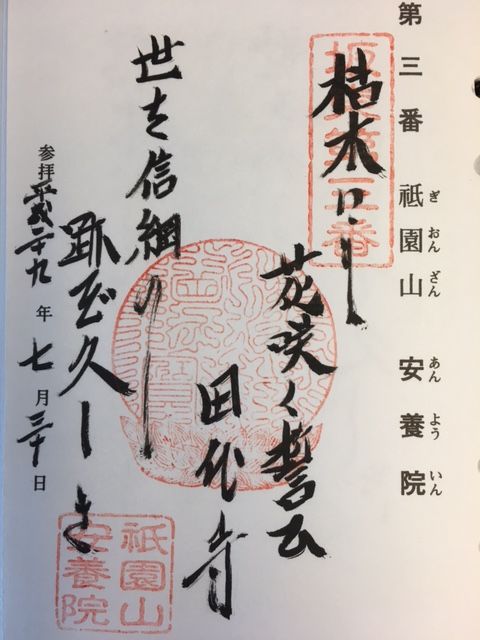 第三番 祇園山 安養院
ぎおんざん あんよういん
坂東第三番
枯木に
花咲く誓ひ
田代寺
世を信綱の
跡ぞ久しき
参拝平成二十九年七月三十日
祇園山
安養院